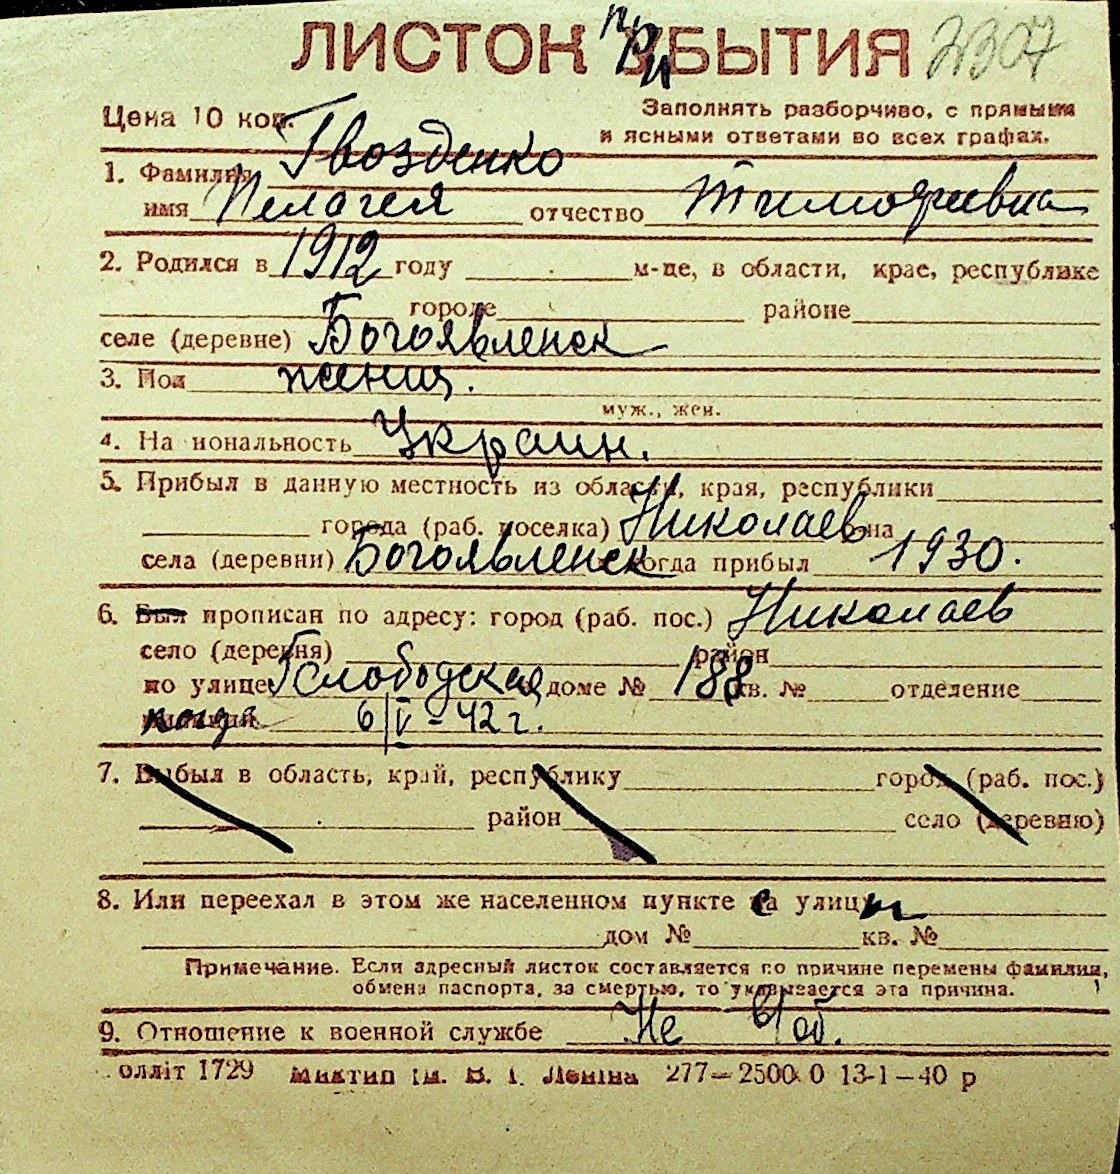 ЛИСТОК ПРИБЫТИЯ 2307
Цена 10 коп. Заполнять разборчиво, с прямыми
и ясными ответами во всех графах.
1. Фамилия Гвозденко
имя Пелагея отчество Тимофеевна
2. Родился в 1912 году м-це, в области, крае, республике
городе районе
селе (деревне) Богоявленск
3. Пол женщ.
муж., жен.
4. На иональность Украин.
5. Прибыл в данную местность из области, края, республики
города (раб. поселка) Николаев она
села (деревни) Богоявленск когда прибыл 1930.
6. Был прописан по адресу: город (раб. пос.) Николаев
село (деревня) район
по улице Слободская доме № 188 кв. № отделение
когда 6/V-42 г.
7. Выбыл в область, край, республику город (раб. пос.)
район село (деревню)
8. Или переехал в этом же населенном пункте с улицы
дом № кв. №
Примечание. Если адресный листок составляется по причине перемены фамилии,
обмена паспорта, за смертью, то указывается эта причина.
9. Отношение к военной службе Не в/об.
олліт 1729 Миктип ім. В. І. Леніна 277—2500 0 13-1-40 р